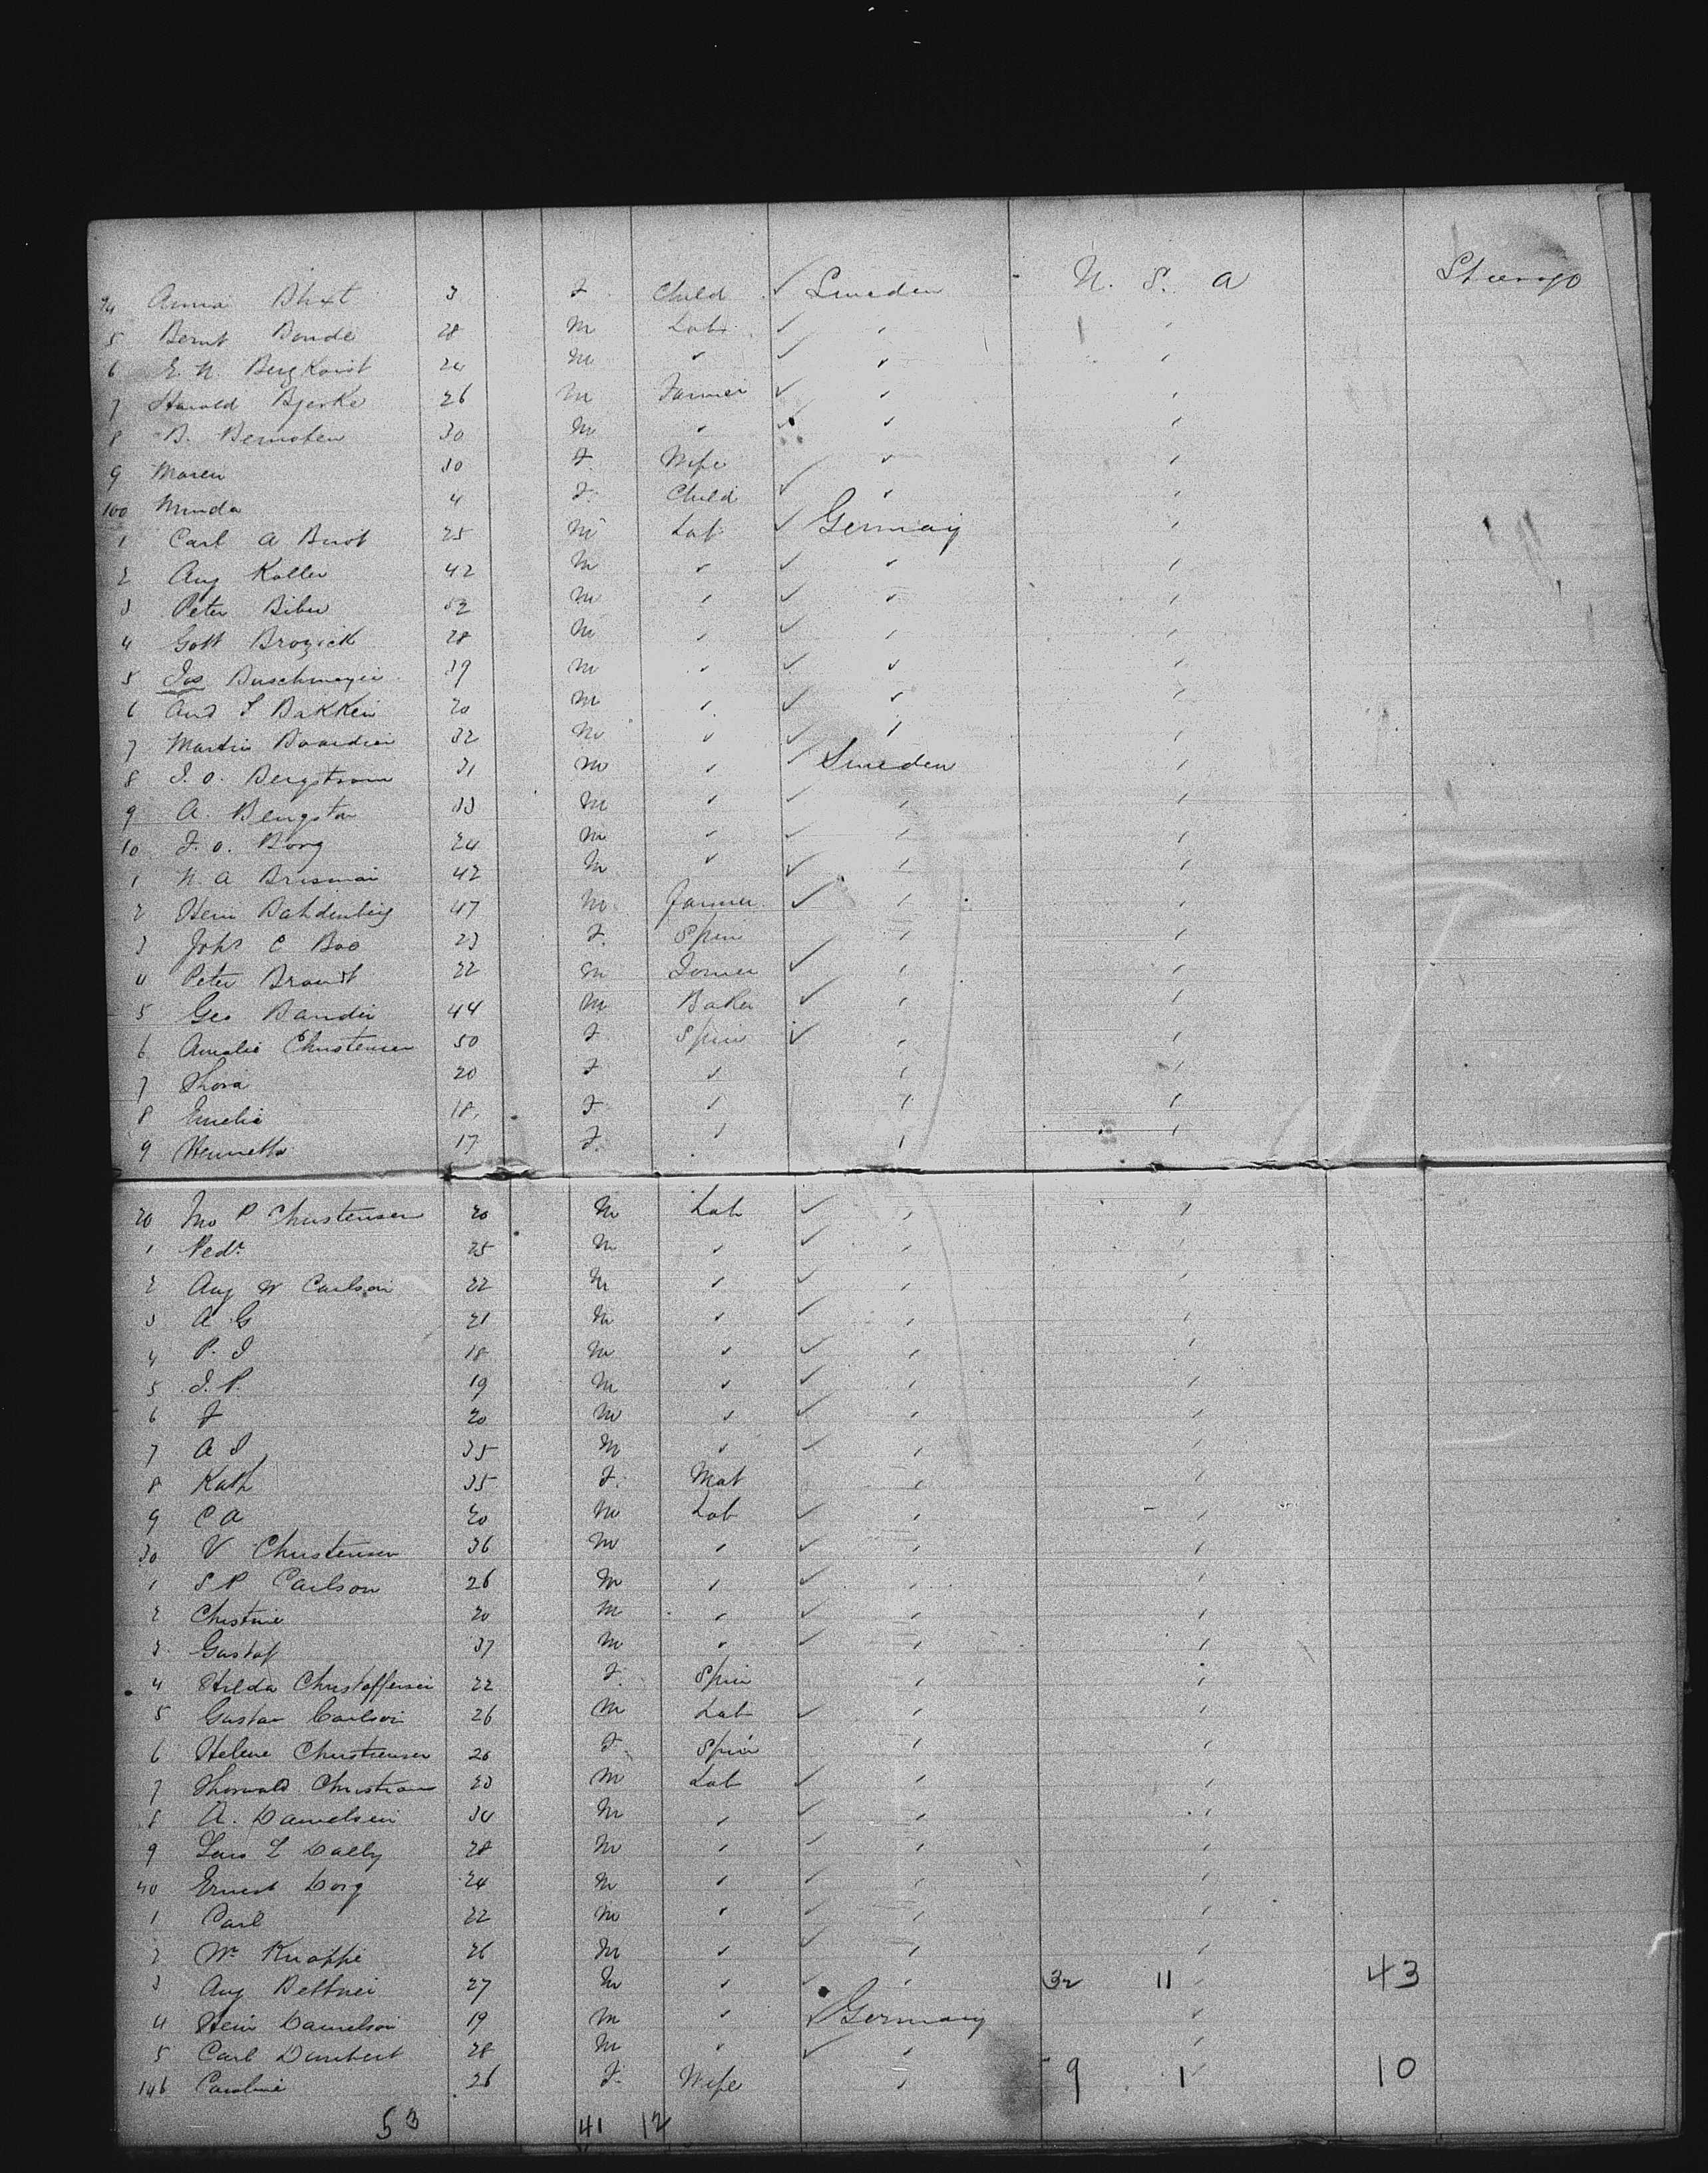 94 Anna Blixt 3 F Child ✓ Sweden U. S. A Steerage
5 Bernt Bonde 28 M Lab ✓ ' '
6 E. N. Bergkvist 24 M ✓ ✓ ' '
7 Harald Bjerke 26 M Farmer ✓ ' '
8 B. Bernsten 30 M ✓ ✓ ' '
9 Maren 30 F Wife ✓ ' '
100 Minda 4 F. Child ✓ ' '
1 Carl A 25 M Lab ✓ Germany '
2 Aug Koller 42 M ✓ ✓ ✓ '
3 Peter Biber 32 M ' ✓ ✓ '
4 Gott Brozick 28 M ' ✓ ' '
5 Jos Buschmeyer 39 M ✓ ✓ ✓ '
6 And S Bakken 20 M ' ✓ ✓ '
7 Martin 32 M ✓ ✓ ' '
8 J. O. Bergstrom 31 M ✓ ✓ Sweden '
9 A. Bengston 33 M ✓ ✓ ' '
10 F. O. Borg 24 M ✓ ✓ ' '
1 N. A 42 M ✓ ✓ ' '
2 47 M Farmer ✓ ' '
3 Joh C Boo 23 F. Spin ' '
4 Peter Brandt 22 M Joiner ✓ ' '
5 Geo 44 M Baker ✓ ' '
6 Amalie Christensen 50 F Spin ✓ ' '
7 Thora 20 F ✓ ' '
8 Emelie 18 F ✓ ' '
9 Henrietta 17 F. ' ' '
20 Jno P Christensen 20 M Lab ✓ ' '
1 Pedr 25 M ✓ ✓ ' '
2 Aug W Carlson 22 M ✓ ✓ ' '
3 A. G 21 M ✓ ✓ ' '
4 P. J 18 M ✓ ✓ ' '
5 J. P. 19 M ✓ ✓ ' '
6 F 20 M ✓ ✓ ' '
7 A J 35 M ✓ ✓ ' '
8 Kath 35 F. Mat ' '
9 C A 20 M Lab ✓ ' '
30 V Christensen 36 M ' ✓ ' '
1 S P Carlson 26 M ' ✓ ' '
2 Christine 20 M ' ✓ ' '
3 Gustaf 37 M ✓ ✓ ' '
4 Hilda Christoffersen 22 F. Spin ' '
5 Gustav Carlson 26 M Lab ✓ ' '
6 Helene Christiensen 26 F. Spin ' '
7 Thorvald 23 M Lab ✓ ' '
8 A. Danielsen 34 M ' ✓ ' '
9 Lars L Dalby 28 M ' ✓ ' '
40 Ernest Dorg 24 M ✓ ✓ ' '
1 Carl 22 M ✓ ✓ ' '
2 Wm Knappe 26 M ✓ ✓ ' '
3 Aug 27 M ✓ ✓ ' 32 11 43
4 Danielson 19 M ✓ ✓ Germany '
5 Carl 28 M ✓ ✓ ' '
146 Caroline 26 F. Wife ' 9 1 10
53 41 12